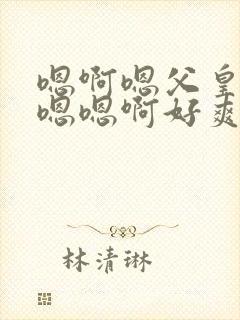 嗯啊嗯父皇
嗯嗯啊好爽
林清琳